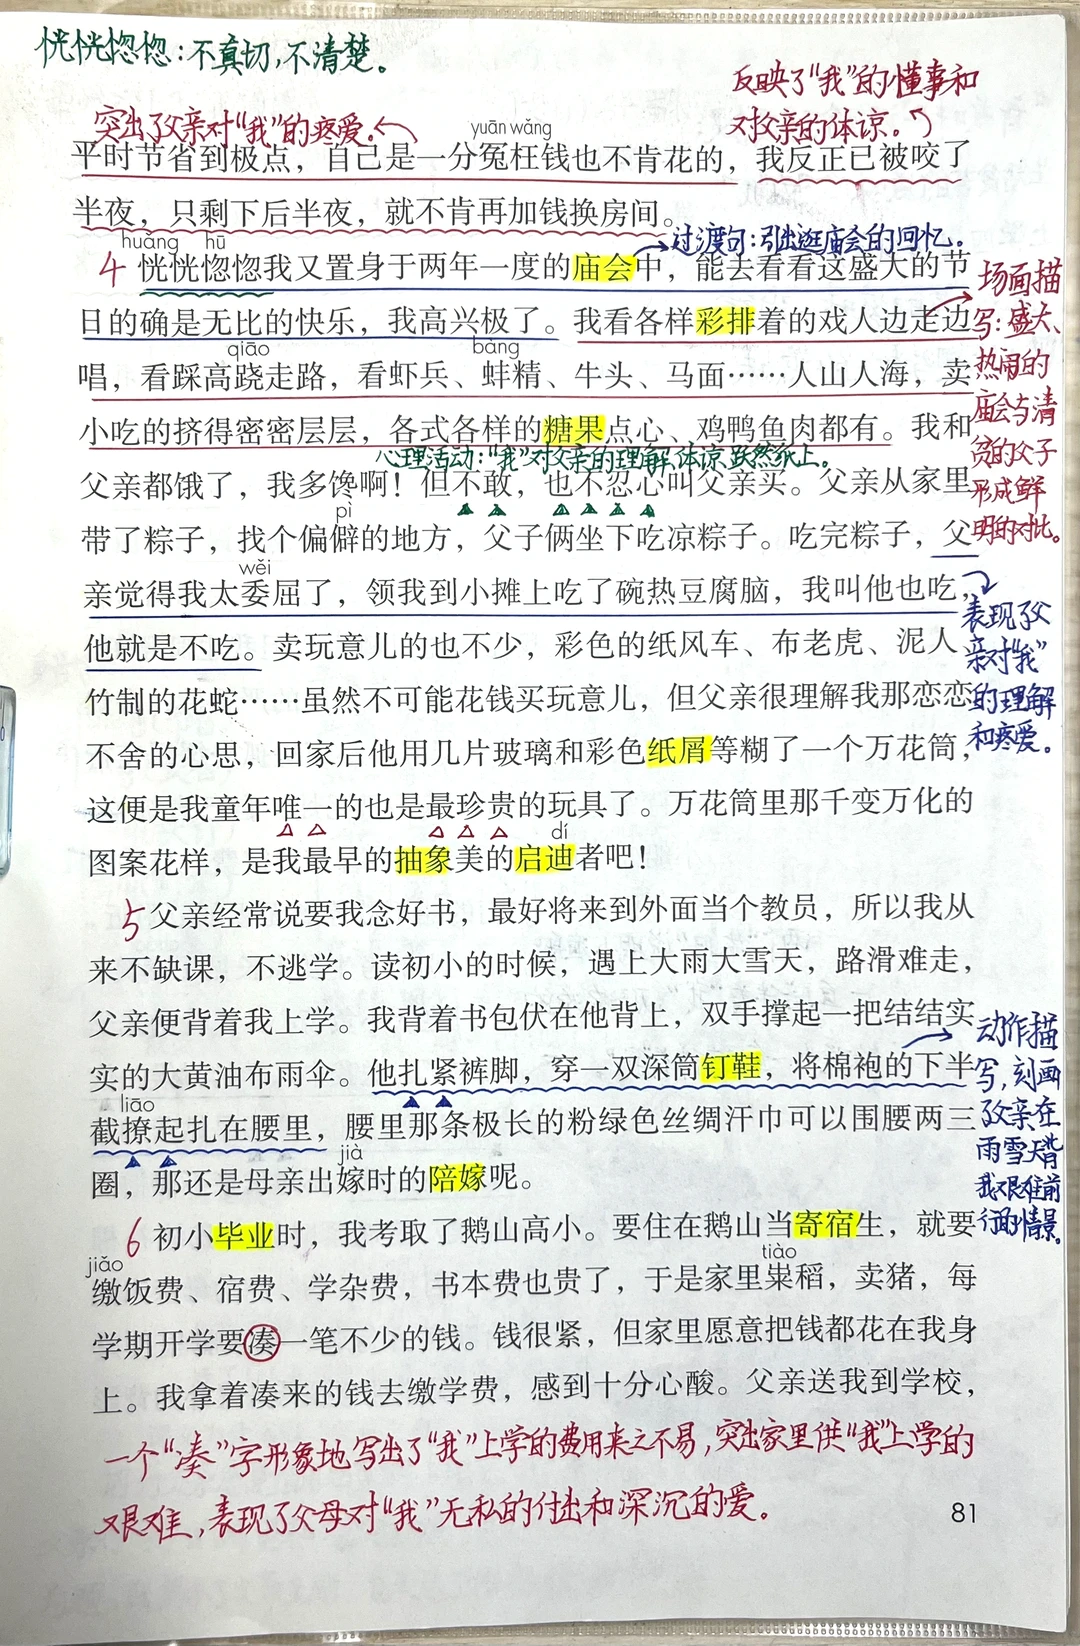 恍恍惚惚：不真切，不清楚。
反映了“我”的懂事和
对父亲的体谅。
突出了父亲对“我”的疼爱。
yuān wǎng
平时节省到极点，自己是一分冤枉钱也不肯花的，我反正已被咬了
半夜，只剩下后半夜，就不肯再加钱换房间。
过渡句：引出逛庙会的回忆。
huǎng hū
4 恍恍惚惚我又置身于两年一度的庙会中，能去看看这盛大的节
日的确是无比的快乐，我高兴极了。我看各样彩排着的戏人边走边
qiāo bàng
唱，看踩高跷走路，看虾兵、蚌精、牛头、马面……人山人海，卖
小吃的挤得密密层层，各式各样的糖果点心、鸡鸭鱼肉都有。我和
心理活动：“我”对父亲的理解、体谅跃然纸上。
父亲都饿了，我多馋啊！但不敢，也不忍心叫父亲买。父亲从家里
pì
带了粽子，找个偏僻的地方，父子俩坐下吃凉粽子。吃完粽子，父
wěi
亲觉得我太委屈了，领我到小摊上吃了碗热豆腐脑，我叫他也吃，
他就是不吃。卖玩意儿的也不少，彩色的纸风车、布老虎、泥人、
竹制的花蛇……虽然不可能花钱买玩意儿，但父亲很理解我那恋恋
不舍的心思，回家后他用几片玻璃和彩色纸屑等糊了一个万花筒，
这便是我童年唯一的也是最珍贵的玩具了。万花筒里那千变万化的
dí
图案花样，是我最早的抽象美的启迪者吧！
场面描
写：盛大、
热闹的
庙会与清
贫的父子
形成鲜
明的对比。
表现了父
亲对“我”
的理解
和疼爱。
5 父亲经常说要我念好书，最好将来到外面当个教员，所以我从
来不缺课，不逃学。读初小的时候，遇上大雨大雪天，路滑难走，
父亲便背着我上学。我背着书包伏在他背上，双手撑起一把结结实
实的大黄油布雨伞。他扎紧裤脚，穿一双深筒钉鞋，将棉袍的下半
liāo
截撩起扎在腰里，腰里那条极长的粉绿色丝绸汗巾可以围腰两三
jià
圈，那还是母亲出嫁时的陪嫁呢。
动作描
写，刻画
父亲在
雨雪天背
我艰难前
行的情景。
6 初小毕业时，我考取了鹅山高小。要住在鹅山当寄宿生，就要
jiǎo tiào
缴饭费、宿费、学杂费，书本费也贵了，于是家里粜稻，卖猪，每
学期开学要凑一笔不少的钱。钱很紧，但家里愿意把钱都花在我身
上。我拿着凑来的钱去缴学费，感到十分心酸。父亲送我到学校，
一个“凑”字形象地写出了“我”上学的费用来之不易，突出家里供“我”上学的
艰难，表现了父母对“我”无私的付出和深沉的爱。
81